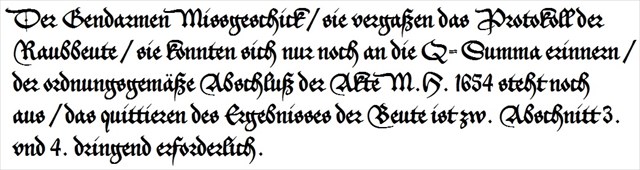 Der Gendarmen Missgeschick / sie vergaßen das Protokoll der
Raubbeute / sie konnten sich nur noch an die Q-Summa erinnern /
der ordnungsgemäße Abschluß der Akte M.H. 1654 steht noch
aus / das quittieren des Ergebnisses der Beute ist zw. Abschnitt 3.
vnd 4. dringend erforderlich.